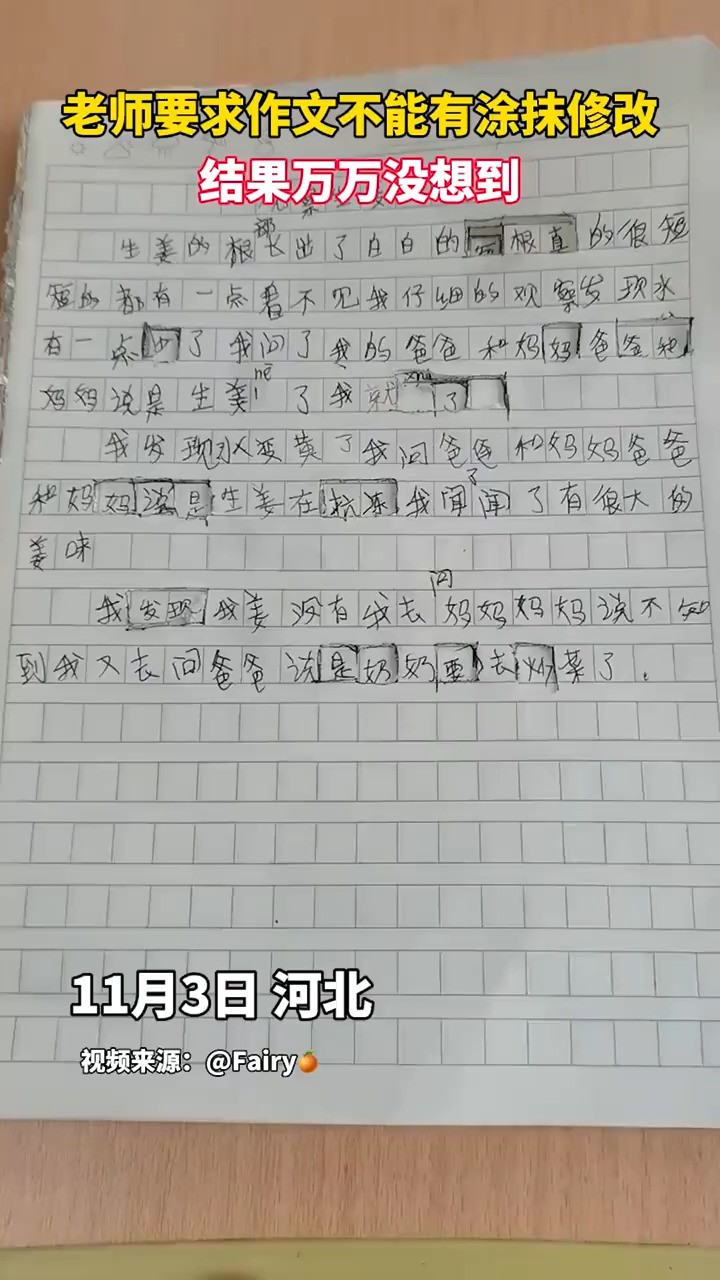 老师要求作文不能有涂抹修改
结果万万没想到
部
生姜的根长出了白白的 根直的很短
短的都有一点看不见我仔细的观察发现水
有一点 了我问了我的爸爸和妈妈爸爸和
nē xnu
妈妈说是生姜 了我就 了
我发现水变黄了我问爸爸和妈妈爸爸
了
和妈妈说是生姜在 冻我闻闻了有很大的
姜味
问
我发现我姜没有我去妈妈妈妈说不知
到我又去问爸爸说是奶奶要去炒菜了.
11月3日 河北
视频来源：@Fairy🍊